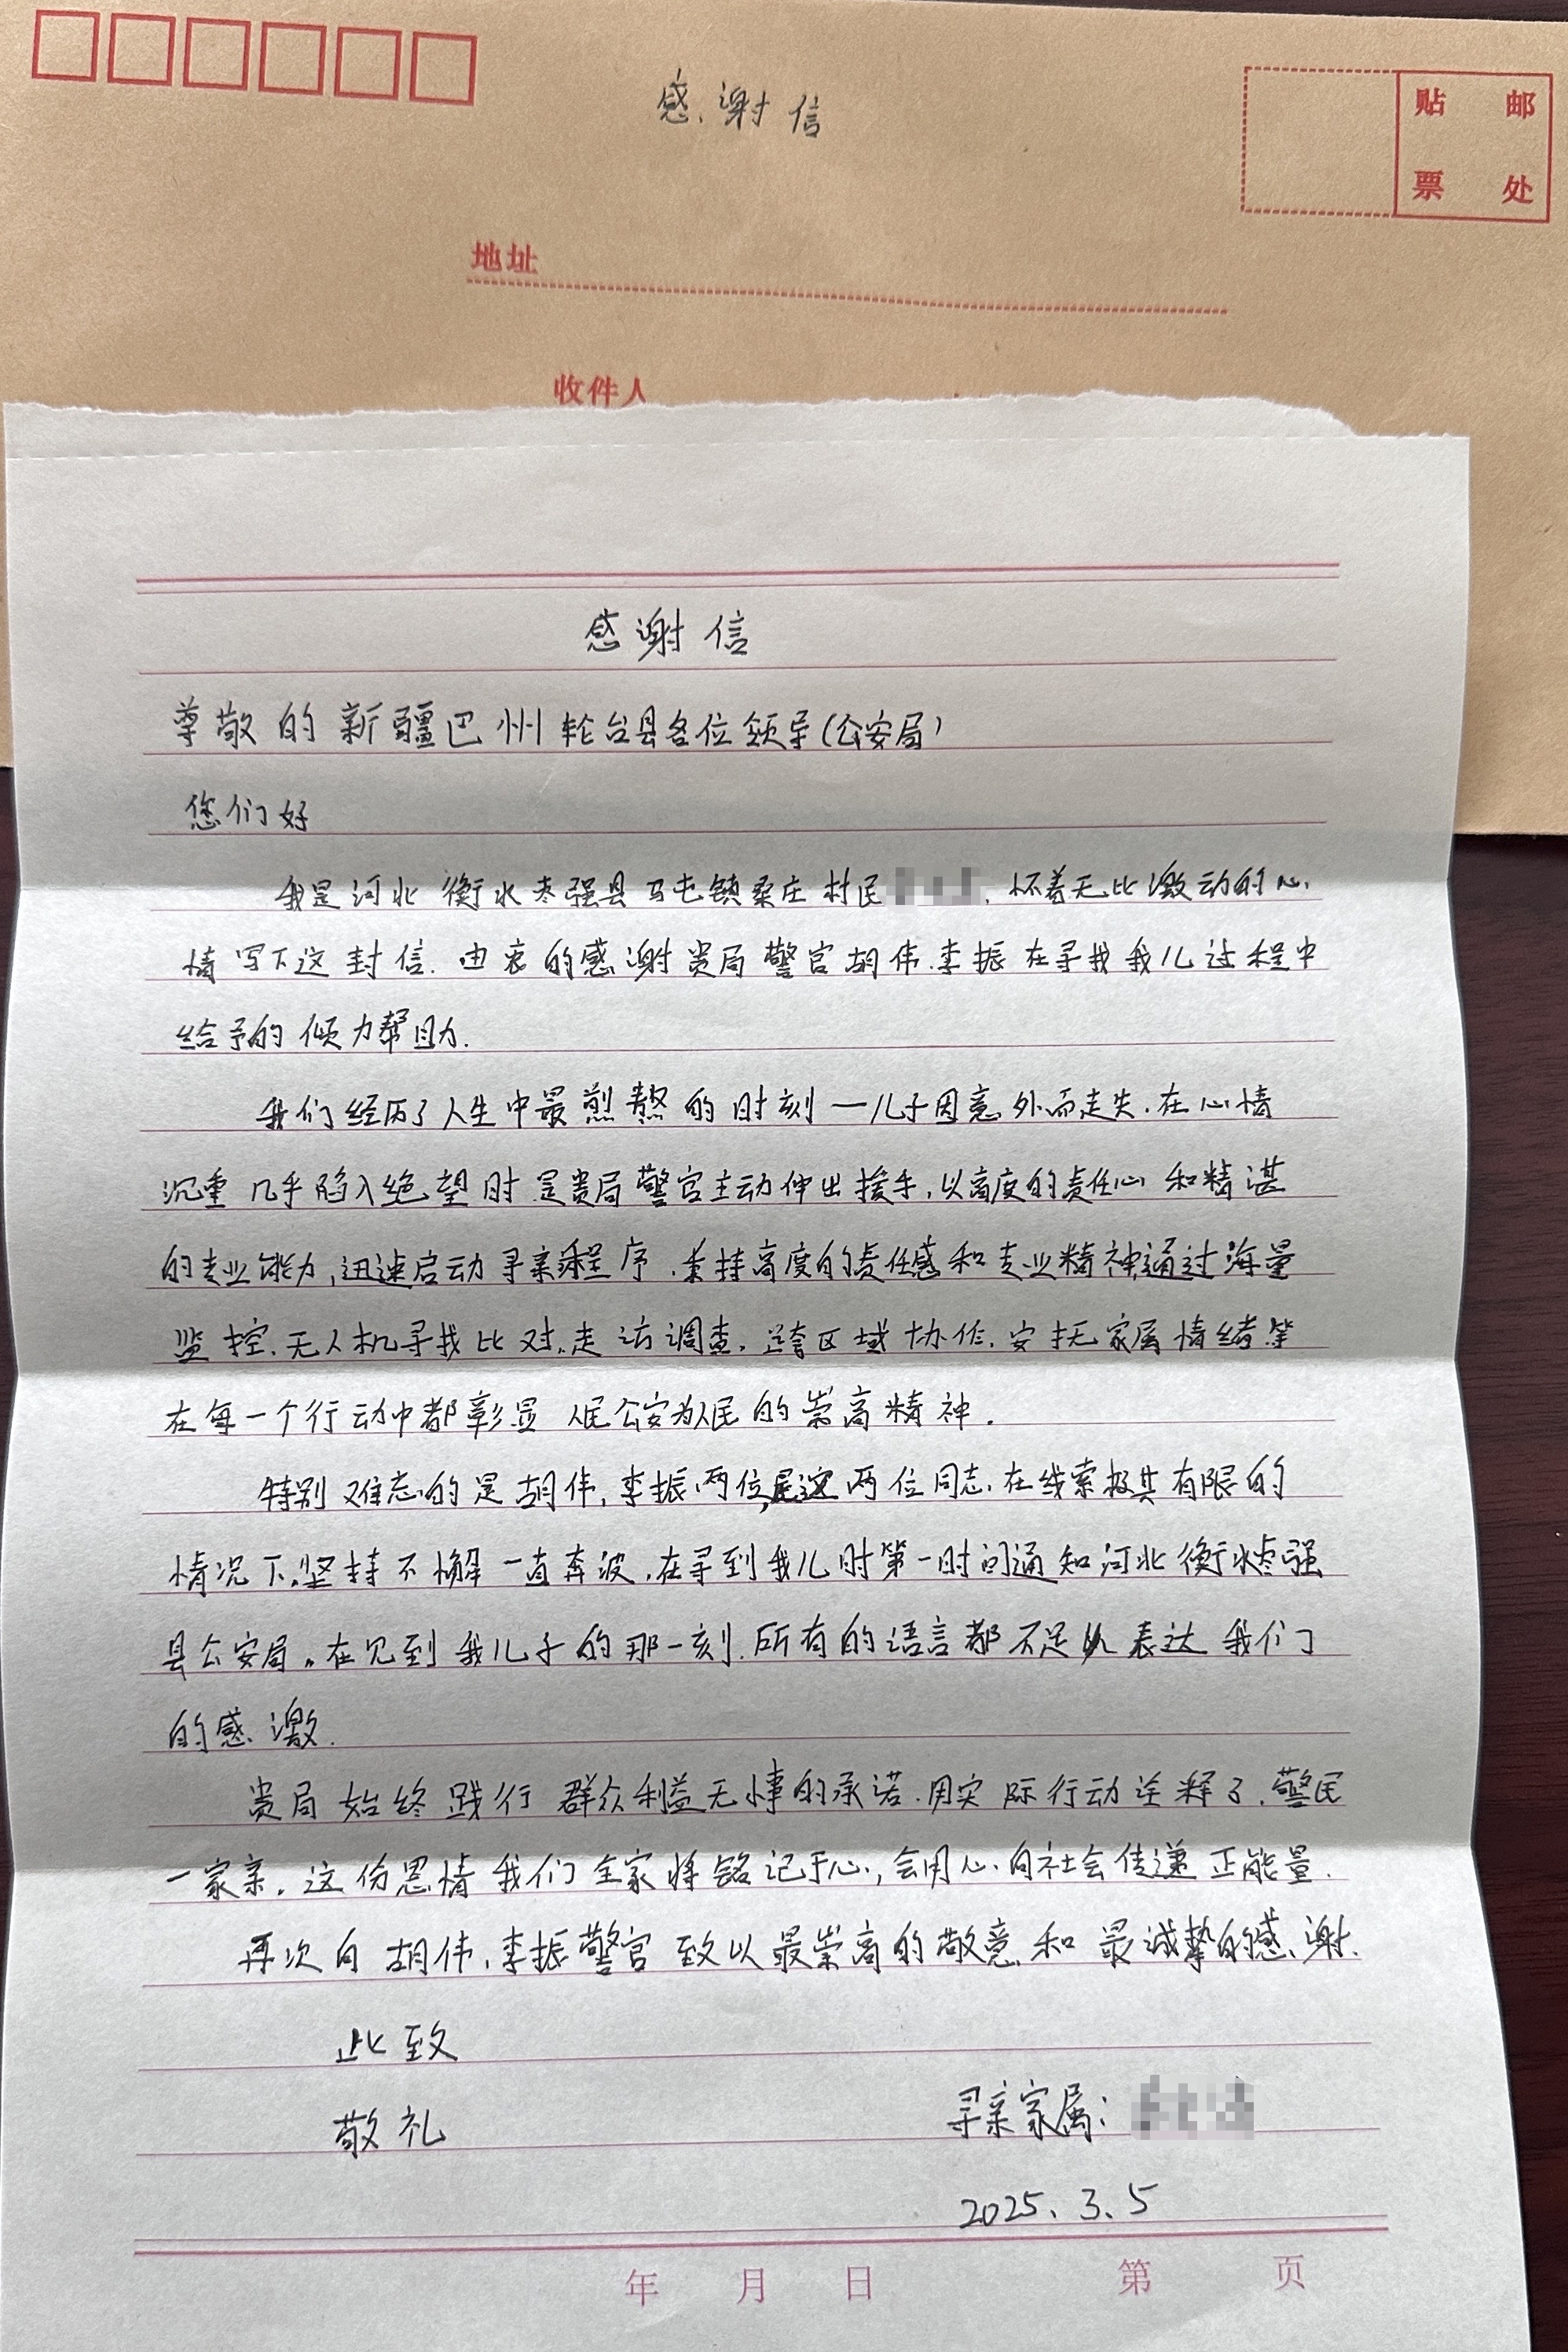 感谢信
贴 邮
票 处
地址
收件人
感谢信
尊敬的新疆巴州轮台县各位领导(公安局)
您们好
我是河北衡水枣强县马屯镇桑庄村民 、怀着无比激动的心
情写下这封信.由衷的感谢贵局警官胡伟.李振在寻找我儿过程中
给予的倾力帮助.
我们经历了人生中最煎熬的时刻—儿子因意外而走失.在心情
沉重几乎陷入绝望时是贵局警官主动伸出援手,以高度的责任心和精湛
的专业能力,迅速启动寻亲程序.秉持高度的责任感和专业精神,通过海量
监控.无人机寻找比对.走访调查.跨区域协作.安抚家属情绪等
在每一个行动中都彰显人民公安为人民的崇高精神.
特别难忘的是胡伟,李振两位,是这两位同志.在线索极其有限的
情况下.坚持不懈一直奔波,在寻到我儿时第一时间通知河北衡水枣强
县公安局。在见到我儿子的那一刻.所有的语言都不足以表达我们
的感激.
贵局始终践行群众利益无小事的承诺.用实际行动诠释了.警民
一家亲.这份恩情我们全家将铭记于心,会用心向社会传递正能量.
再次向胡伟,李振警官致以最崇高的敬意和最诚挚的感谢.
此致
敬礼
寻亲家属:
2025.3.5
年 月 日 第 页